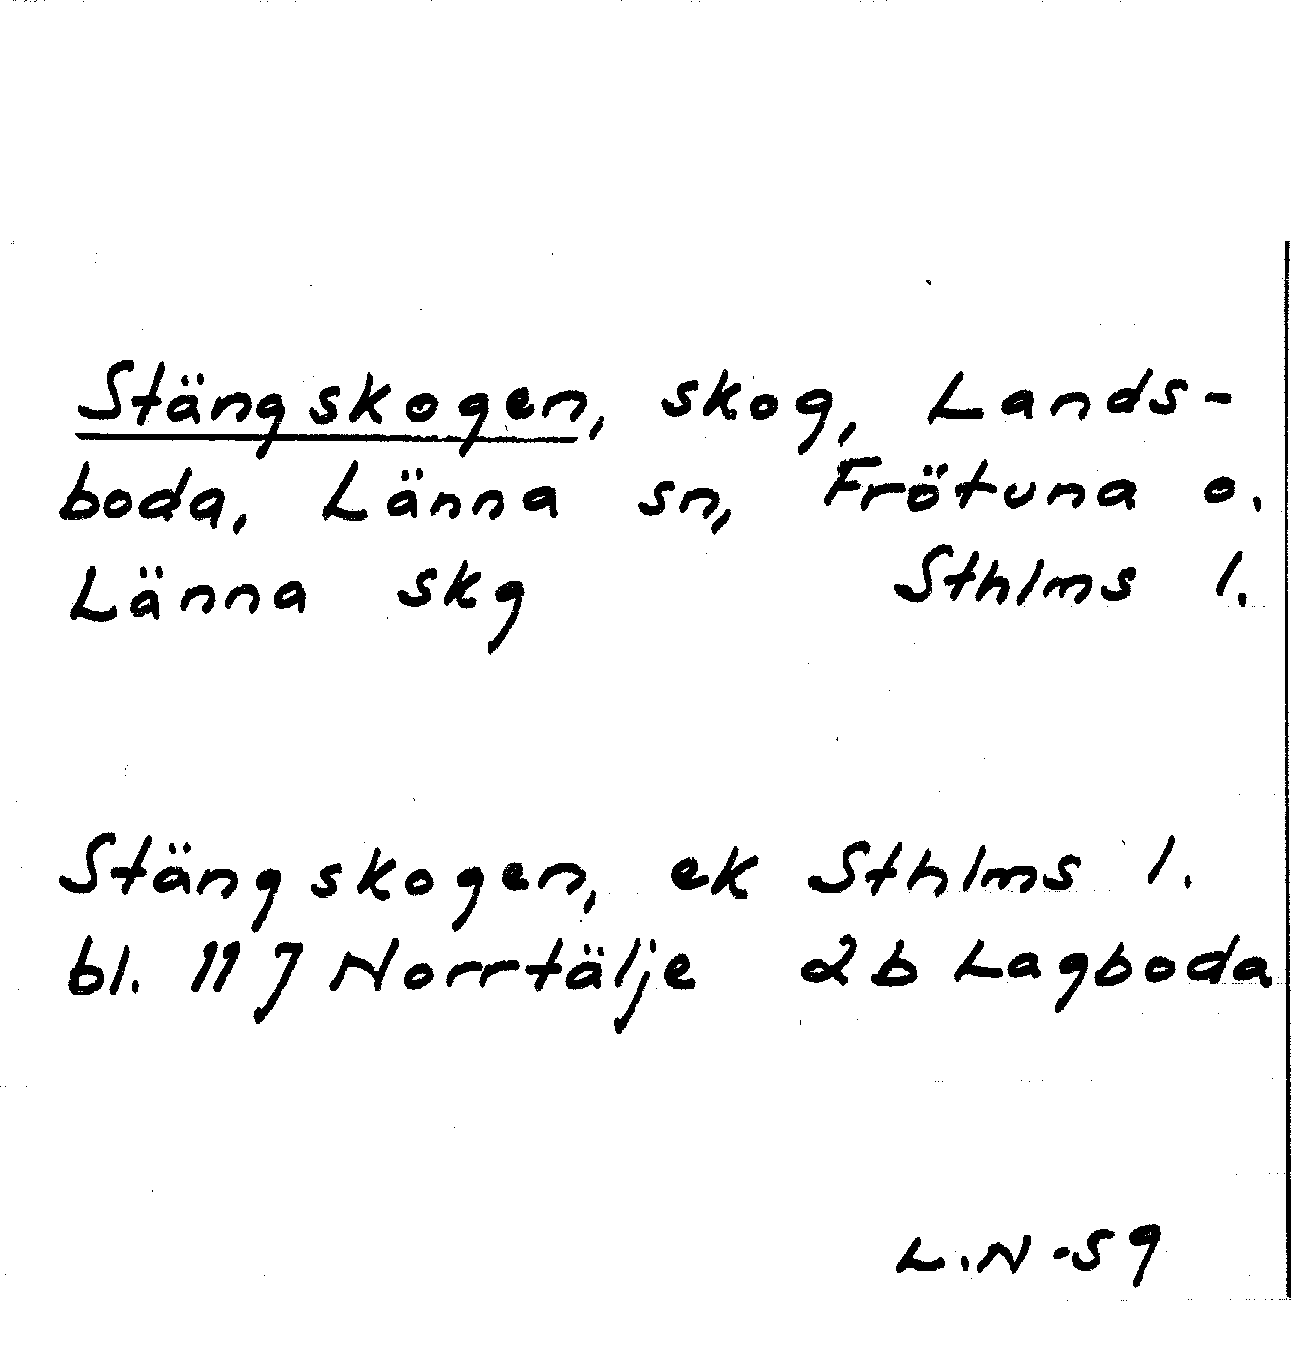 Stängskogen, skog, Lands-
boda, Länna sn, Frötuna o.
Länna skg Sthlms l.
Stängskogen, ek Sthlms l.
bl. 11 J Norrtälje 2b Lagboda
L.N -59